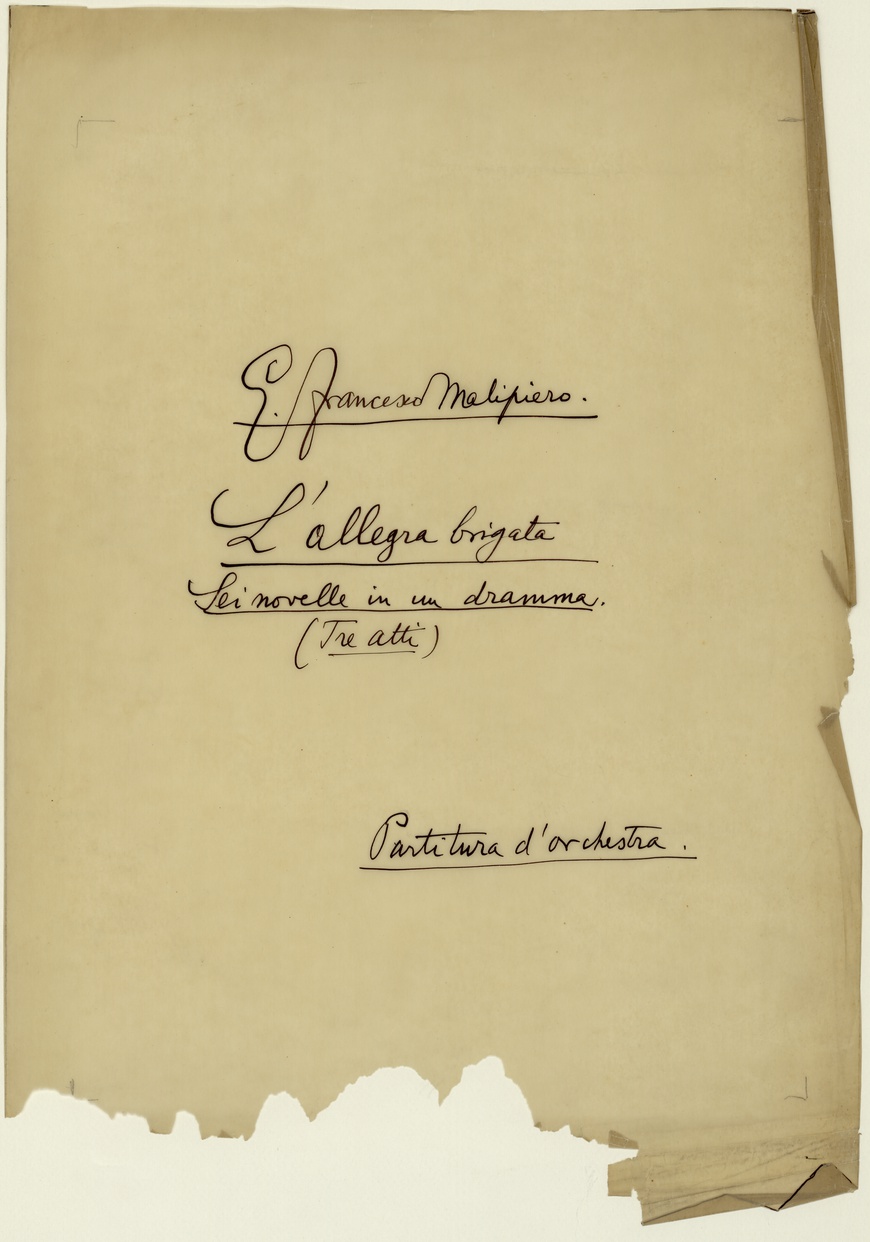 G. Francesco Malipiero.
L'allegra brigata
Sei novelle in un dramma.
(Tre atti)
Partitura d'orchestra.